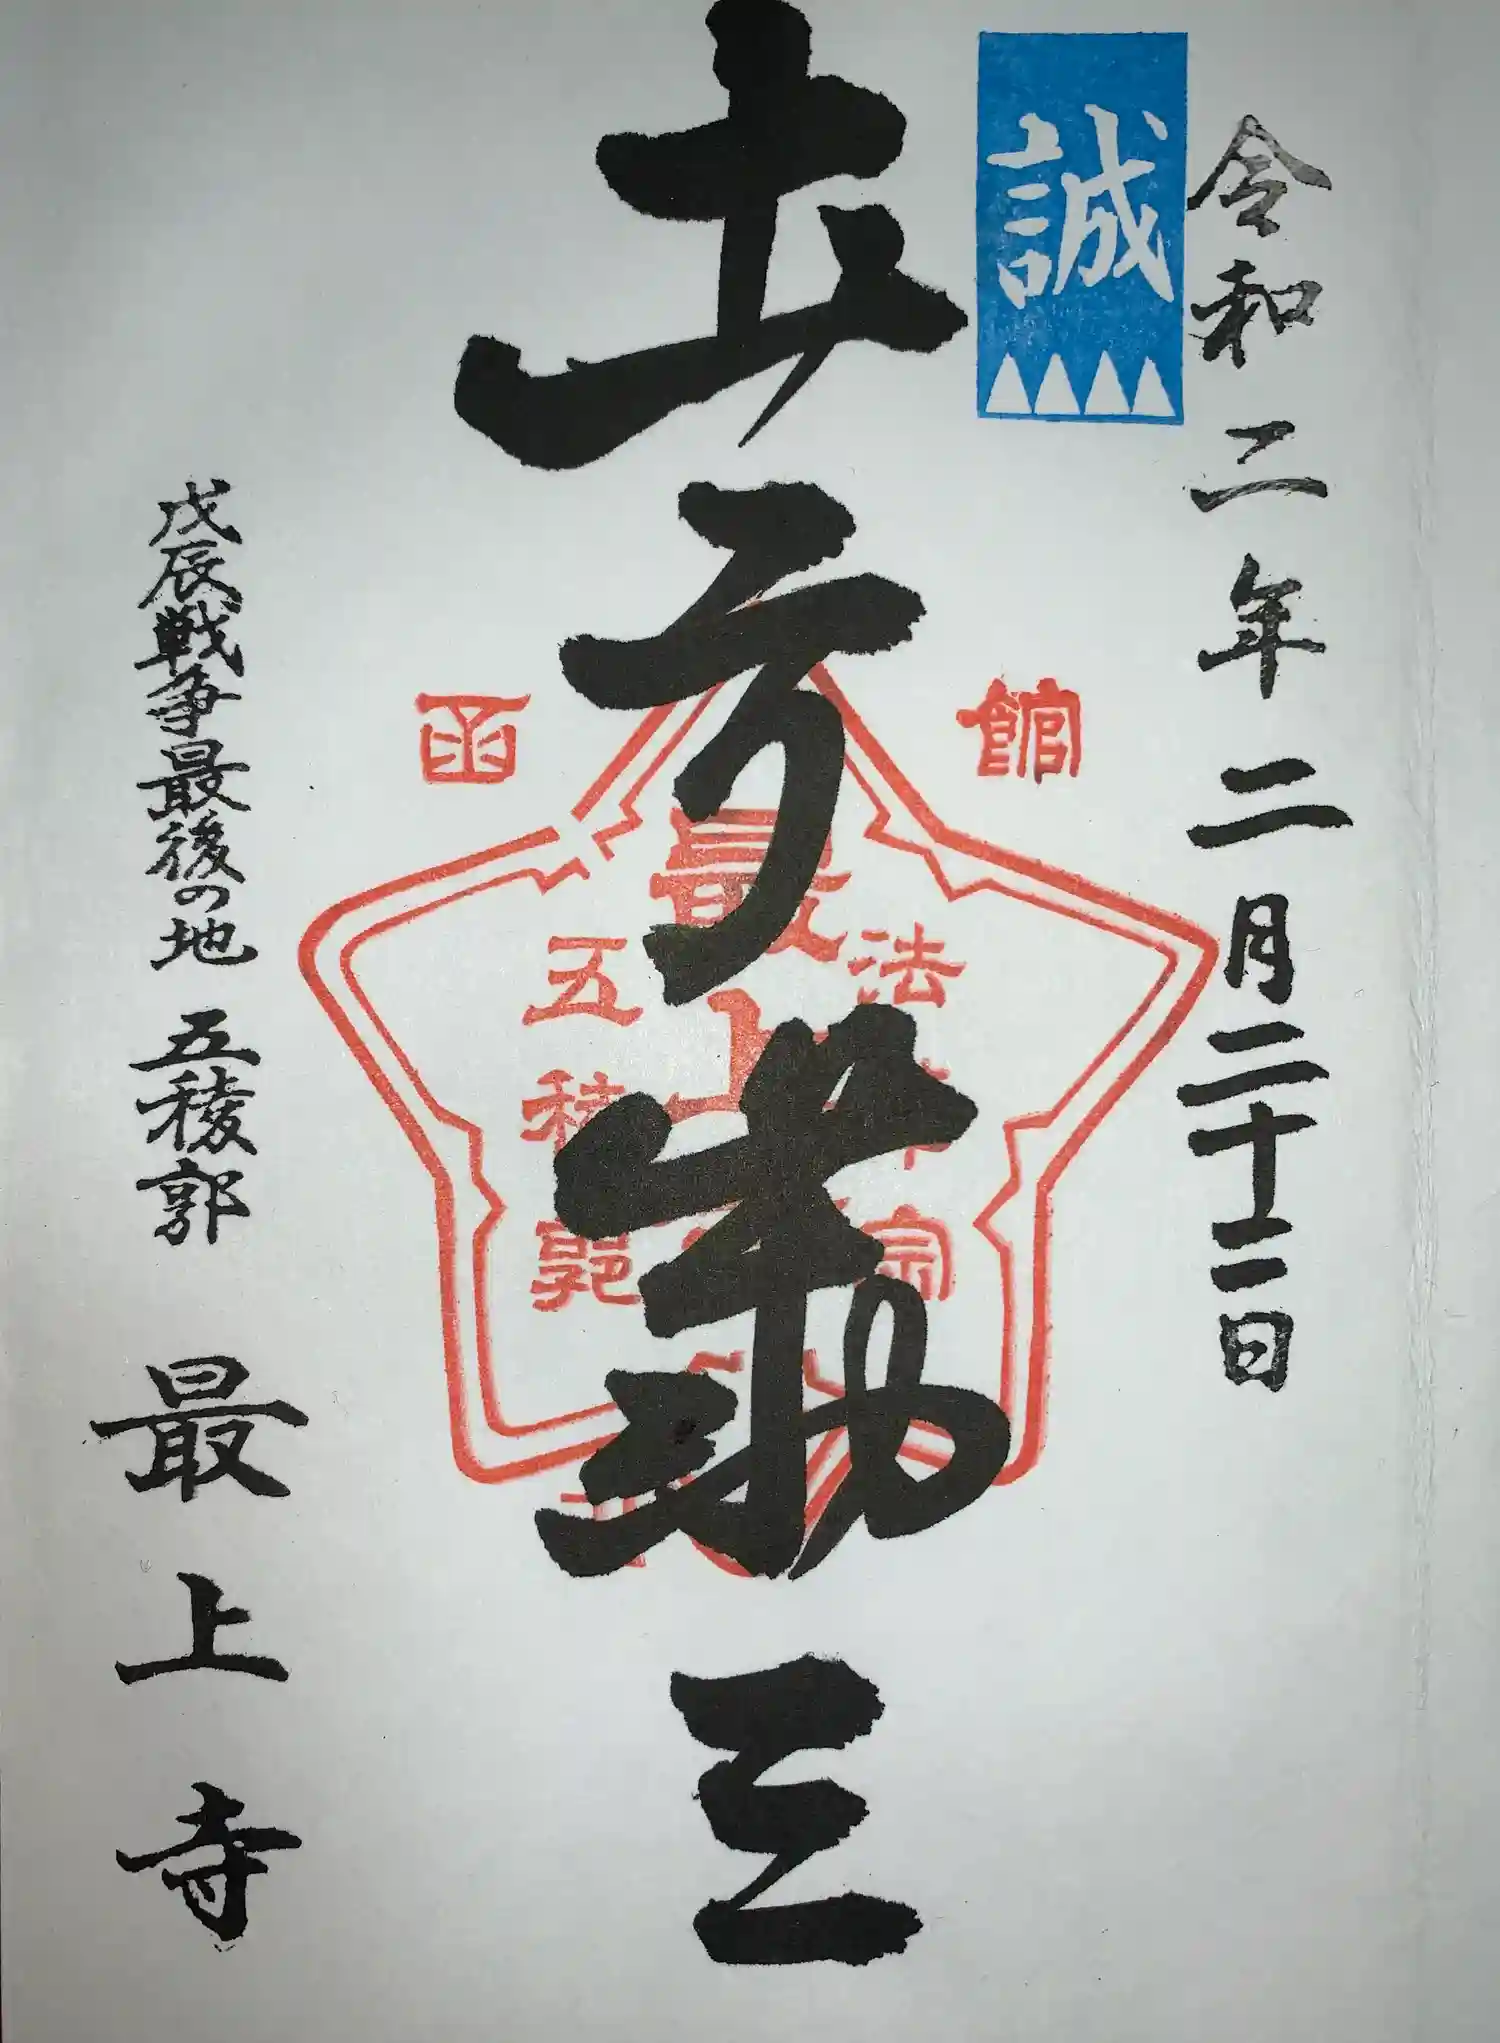 令和二年二月二十二日
誠
土方歳三
函館
法華宗
最上寺
五稜郭
戊辰戦争最後の地 五稜郭 最上寺